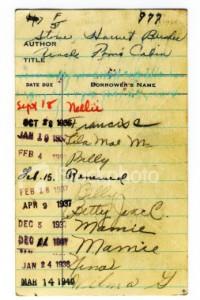 F
777
Stowe Harriet Beecher
AUTHOR
Uncle Tom's Cabin
TITLE
DATE DUE BORROWER'S NAME
Sept 18 Nellie
OCT 28 1935 Francis
JAN 10 Lila Mae M.
FEB 4 Billy
Feb. 15. Renewed
FEB 18 1937 Billy
APR 9 1937 Betty Jane C.
DEC 3 1937 Mamie
DEC 1937 Mamie
JAN 24 1938
MAR 14 1940 Wilma G